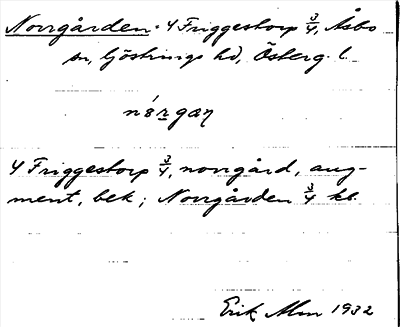 Norrgården. 4 Friggestorp 3/4, Åsbo
sn, Göstrings hd, Österg. l.
4 Friggestorp 3/4, norrgård, aug-
ment, bek; Norrgården 3/4 kb.
Erik Alm 1932